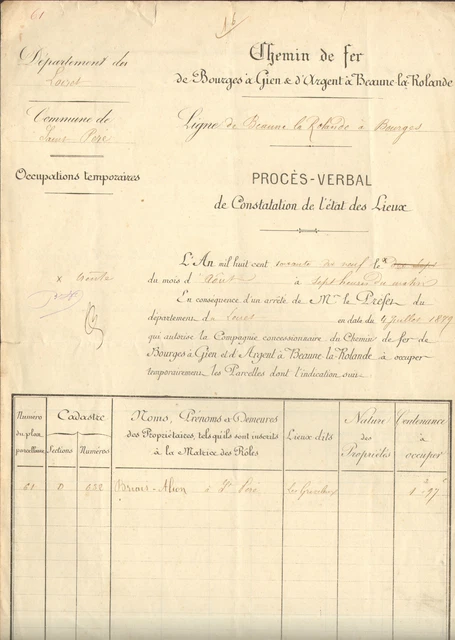 61
Département du
Loiret
Commune de
Saint-Père
Occupations temporaires
Chemin de fer
de Bourges à Gien & d'Argent à Beaune-la-Rolande
Ligne de Beaune la Rolande à Bourges
PROCÈS-VERBAL
de Constatation de l'état des Lieux
L'An mil huit cent soixante dix neuf le x
du mois d'Août à sept heures du matin
x
En conséquence d'un arrêté de Mr le Préfet du
département du Loiret en date du 4 Juillet 1879
qui autorise la Compagnie concessionnaire du Chemin de fer de
Bourges à Gien et d'Argent à Beaune-la-Rolande à occuper
temporairement les Parcelles dont l'indication suit
Numéro du plan parcellaire
Cadastre
Sections
Numéros
Noms, Prénoms & Demeures
des Propriétaires, tels qu'ils sont inscrits
à la Matrice des Rôles
Lieux dits
Nature des Propriétés
Contenance à occuper
61 D 632 à St Père 1 97